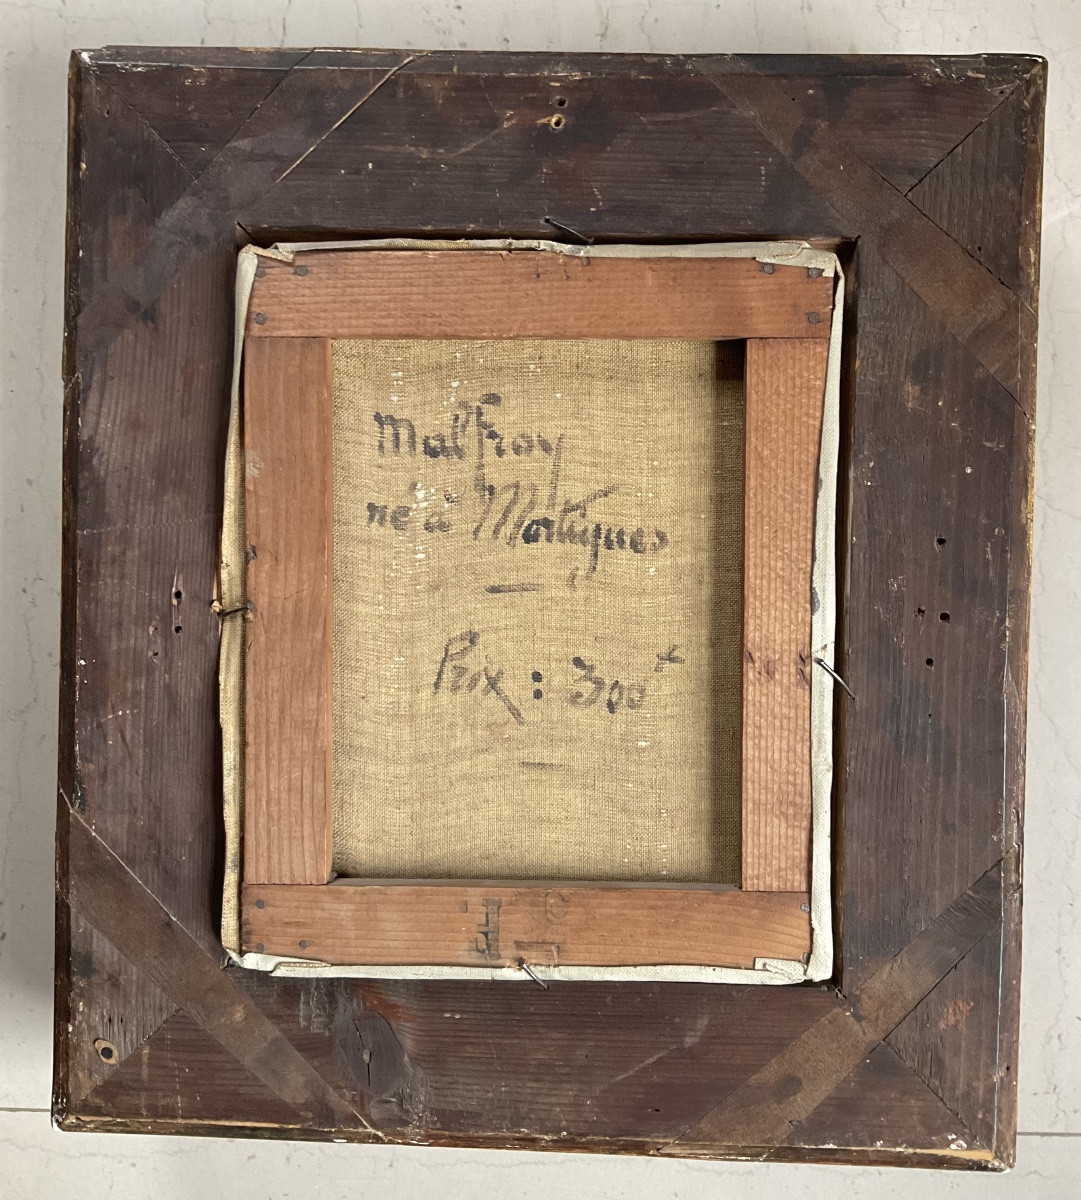 Malfroy
né à Martigues
Prix : 300